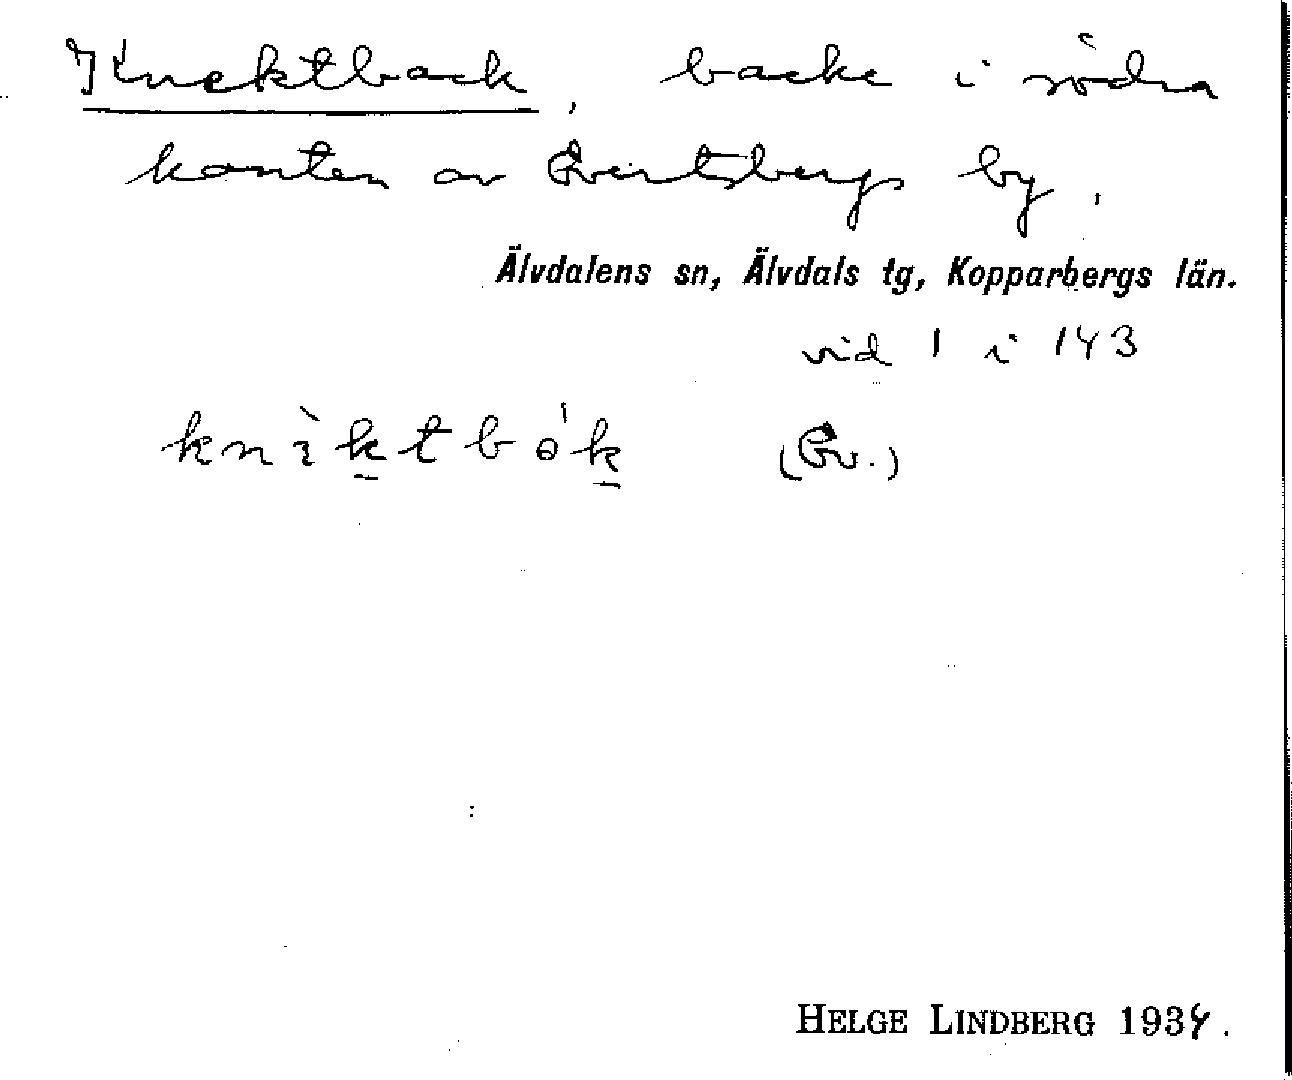 Knektback, backe i södra
kanten av Evertsbergs by.
Älvdalens sn, Älvdals tg, Kopparbergs län.
vid 1 i 143
(Ev.)
HELGE LINDBERG 1934.